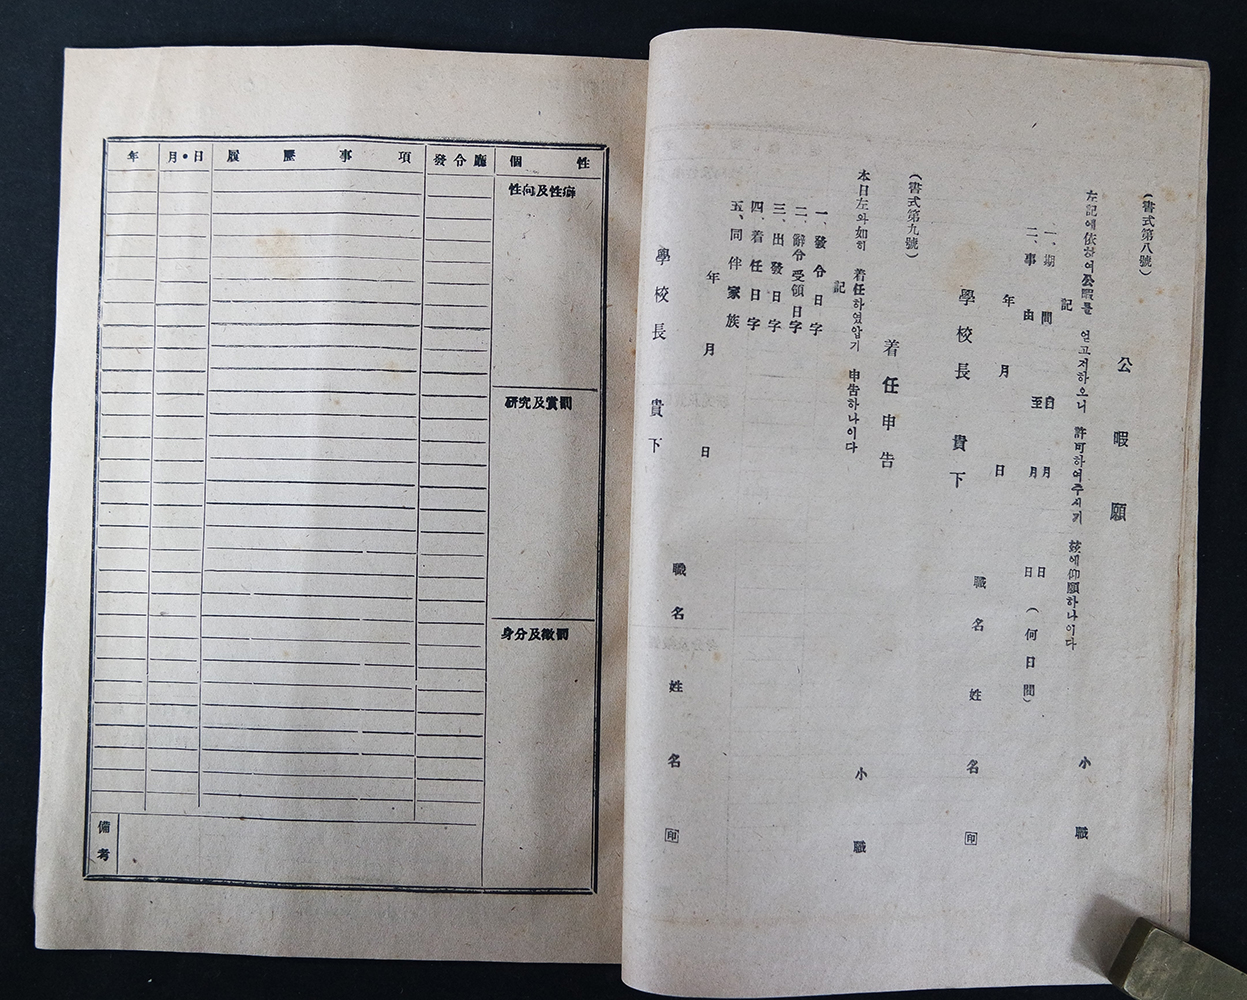 (書式第八號)
公暇願
小職
左記에依하여公暇를 얻고저하오니 許可하여주시기 玆에仰願하나이다
記
一、期間 自 月 日
至 月 日 (何日間)
二、事由
年 月 日
職名 姓名 印
學校長 貴下
(書式第九號)
着任申告
小職
本日左와如히 着任하였압기 申告하나이다
記
一、發令日字
二、辭令受領日字
三、出發日字
四、着任日字
五、同伴家族
年 月 日
職名 姓名 印
學校長 貴下
年 月•日 履歷事項 發令廳 個性
性向及性癖
研究及賞罰
身分及徵罰
備考